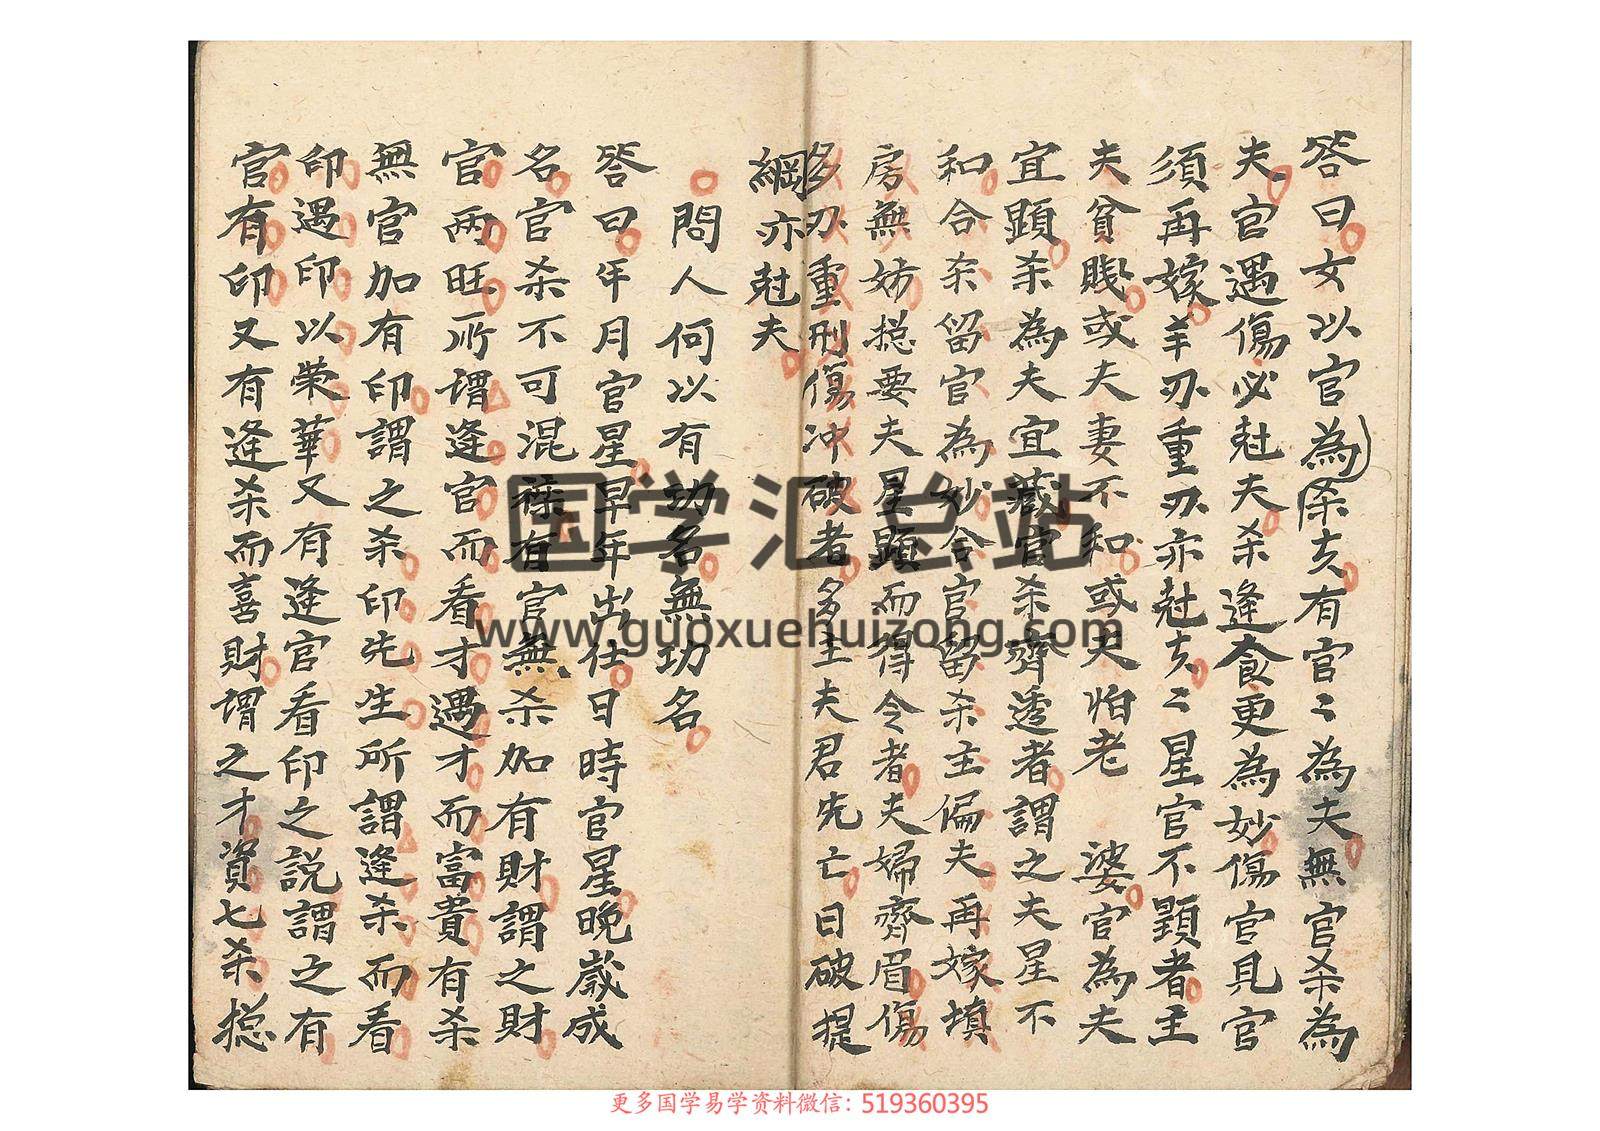 答曰女以官為亲夫有官二為夫無官杀為
夫官遇傷必尅夫杀逢食更為妙傷官見官
須再嫁羊刃重刃亦尅夫二星官不顕者主
夫貧賤或夫妻不和或夫怕老婆官為夫
宜顕杀為夫宜藏官杀齊透者謂之夫星不
和合杀留官為妙合官留杀主偏夫再嫁填
房無妨揔要夫星顕而得令者夫婦齊眉傷
多刃重刑傷冲破者多主夫君先亡日破提
綱亦尅夫
問人何以有功名無功名
答曰年月官星早年出仕日時官星晚歲成
名官杀不可混禄有官無杀加有財謂之財
官两旺所謂逢官而看才遇才而富貴有杀
無官加有印謂之杀印先生所謂逢杀而看
印遇印以荣華又有逢官看印之説謂之有
官有印又有逢杀而喜財謂之才資七杀揔
国学汇总站
www.guoxuehuizong.com
更多国学易学资料微信：519360395